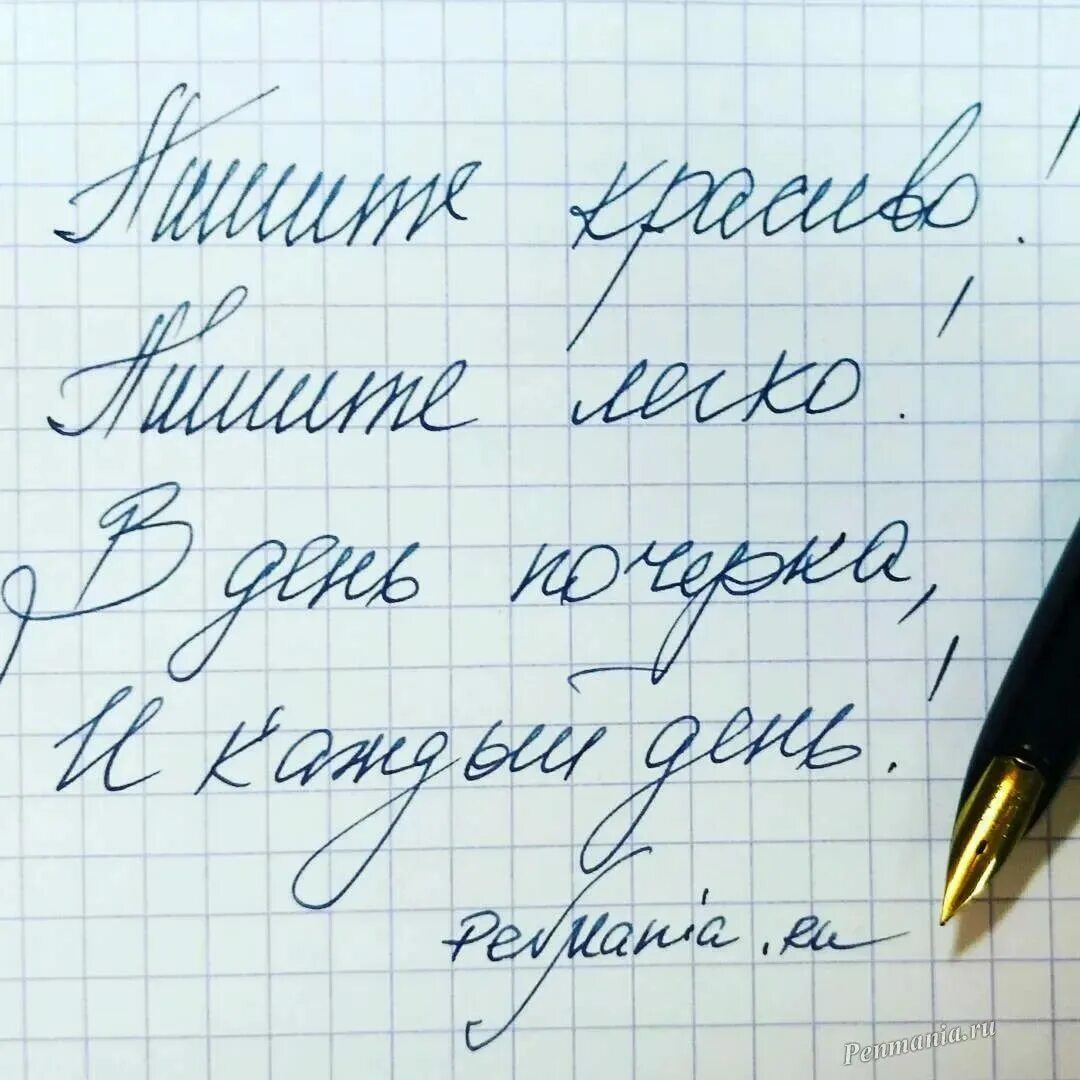 Пишите красиво!
Пишите легко!
В день почерка,
И каждый день!
Penmania.ru
Penmania.ru